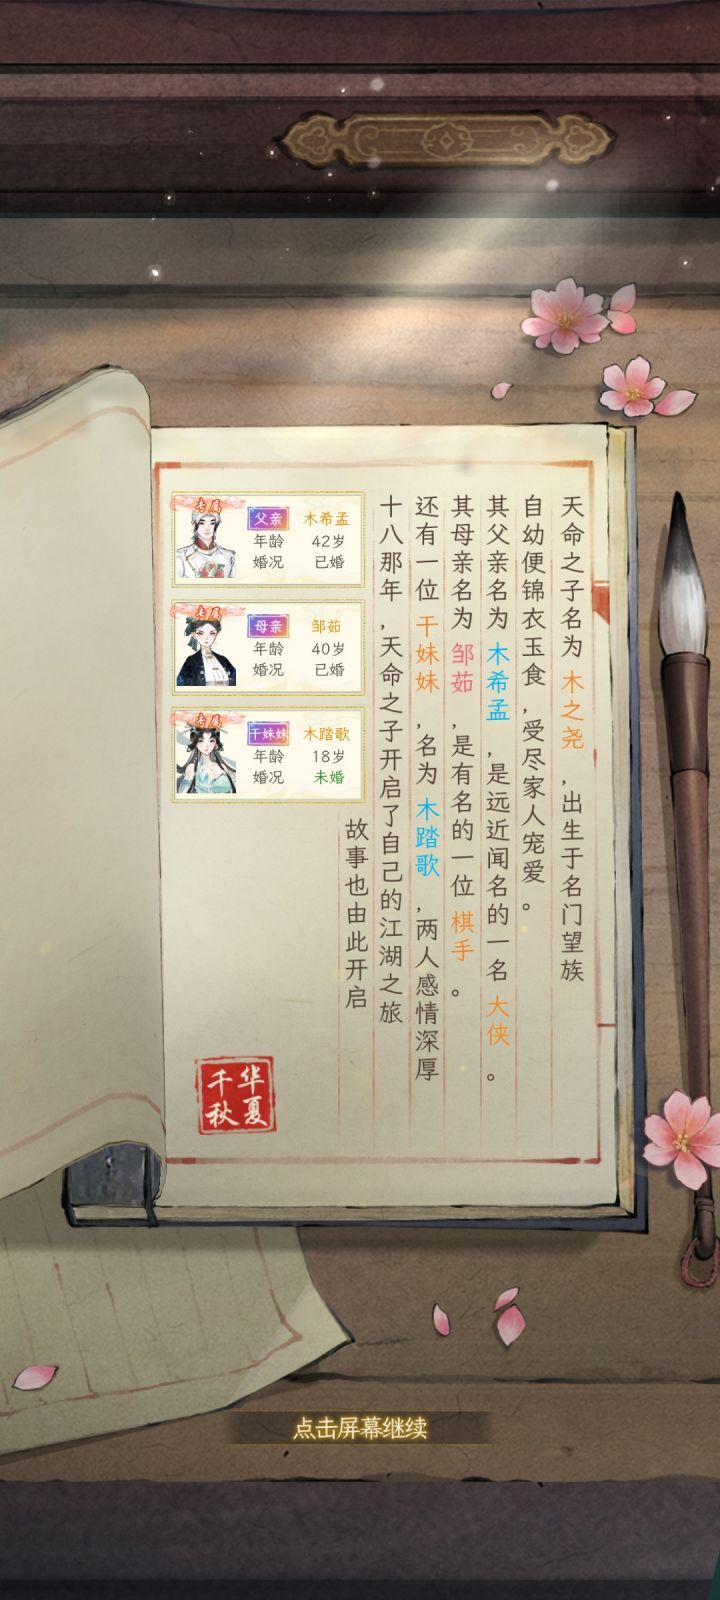 天命之子名为 木之尧 ，出生于名门望族
自幼便锦衣玉食，受尽家人宠爱。
其父亲名为 木希孟 ，是远近闻名的一名 大侠 。
其母亲名为 邹茹 ，是有名的一位 棋手 。
还有一位 干妹妹 ，名为 木踏歌 ，两人感情深厚
十八那年，天命之子开启了自己的江湖之旅
故事也由此开启
专属
父亲 木希孟
年龄 42岁
婚况 已婚
专属
母亲 邹茹
年龄 40岁
婚况 已婚
专属
干妹妹 木踏歌
年龄 18岁
婚况 未婚
华夏
千秋
点击屏幕继续